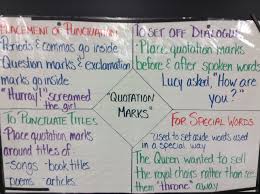 PLACEMENT OF PUNCTUATION
Periods & commas go inside
Question marks & exclamation
marks go inside
"Hurray!" screamed
the girl
TO SET OFF DIALOGUE
Place quotation marks
before & after spoken words
Lucy asked, "How are
you?"
"QUOTATION
MARKS"
TO PUNCTUATE TITLES
Place quotation marks
around titles of:
-songs -book titles
-poems -articles
FOR SPECIAL WORDS
-used to set aside words used in
a special way
The Queen wanted to sell
the royal chairs rather than see
them "throne" away.